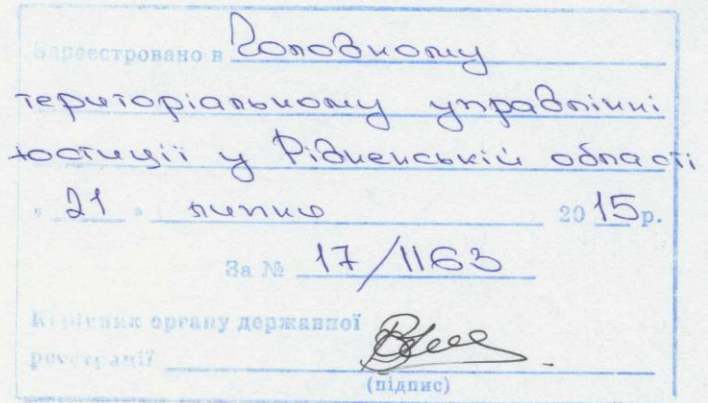 Зареєстровано в Головному
територіальному управлінні
юстиції у Рівненській області
" 21 " липня 2015р.
За № 17/1163
Керівник органу державної
реєстрації
(підпис)